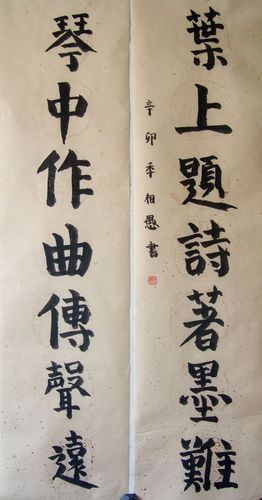 葉上題詩著墨難
辛卯季相愚書
琴中作曲傳聲遠